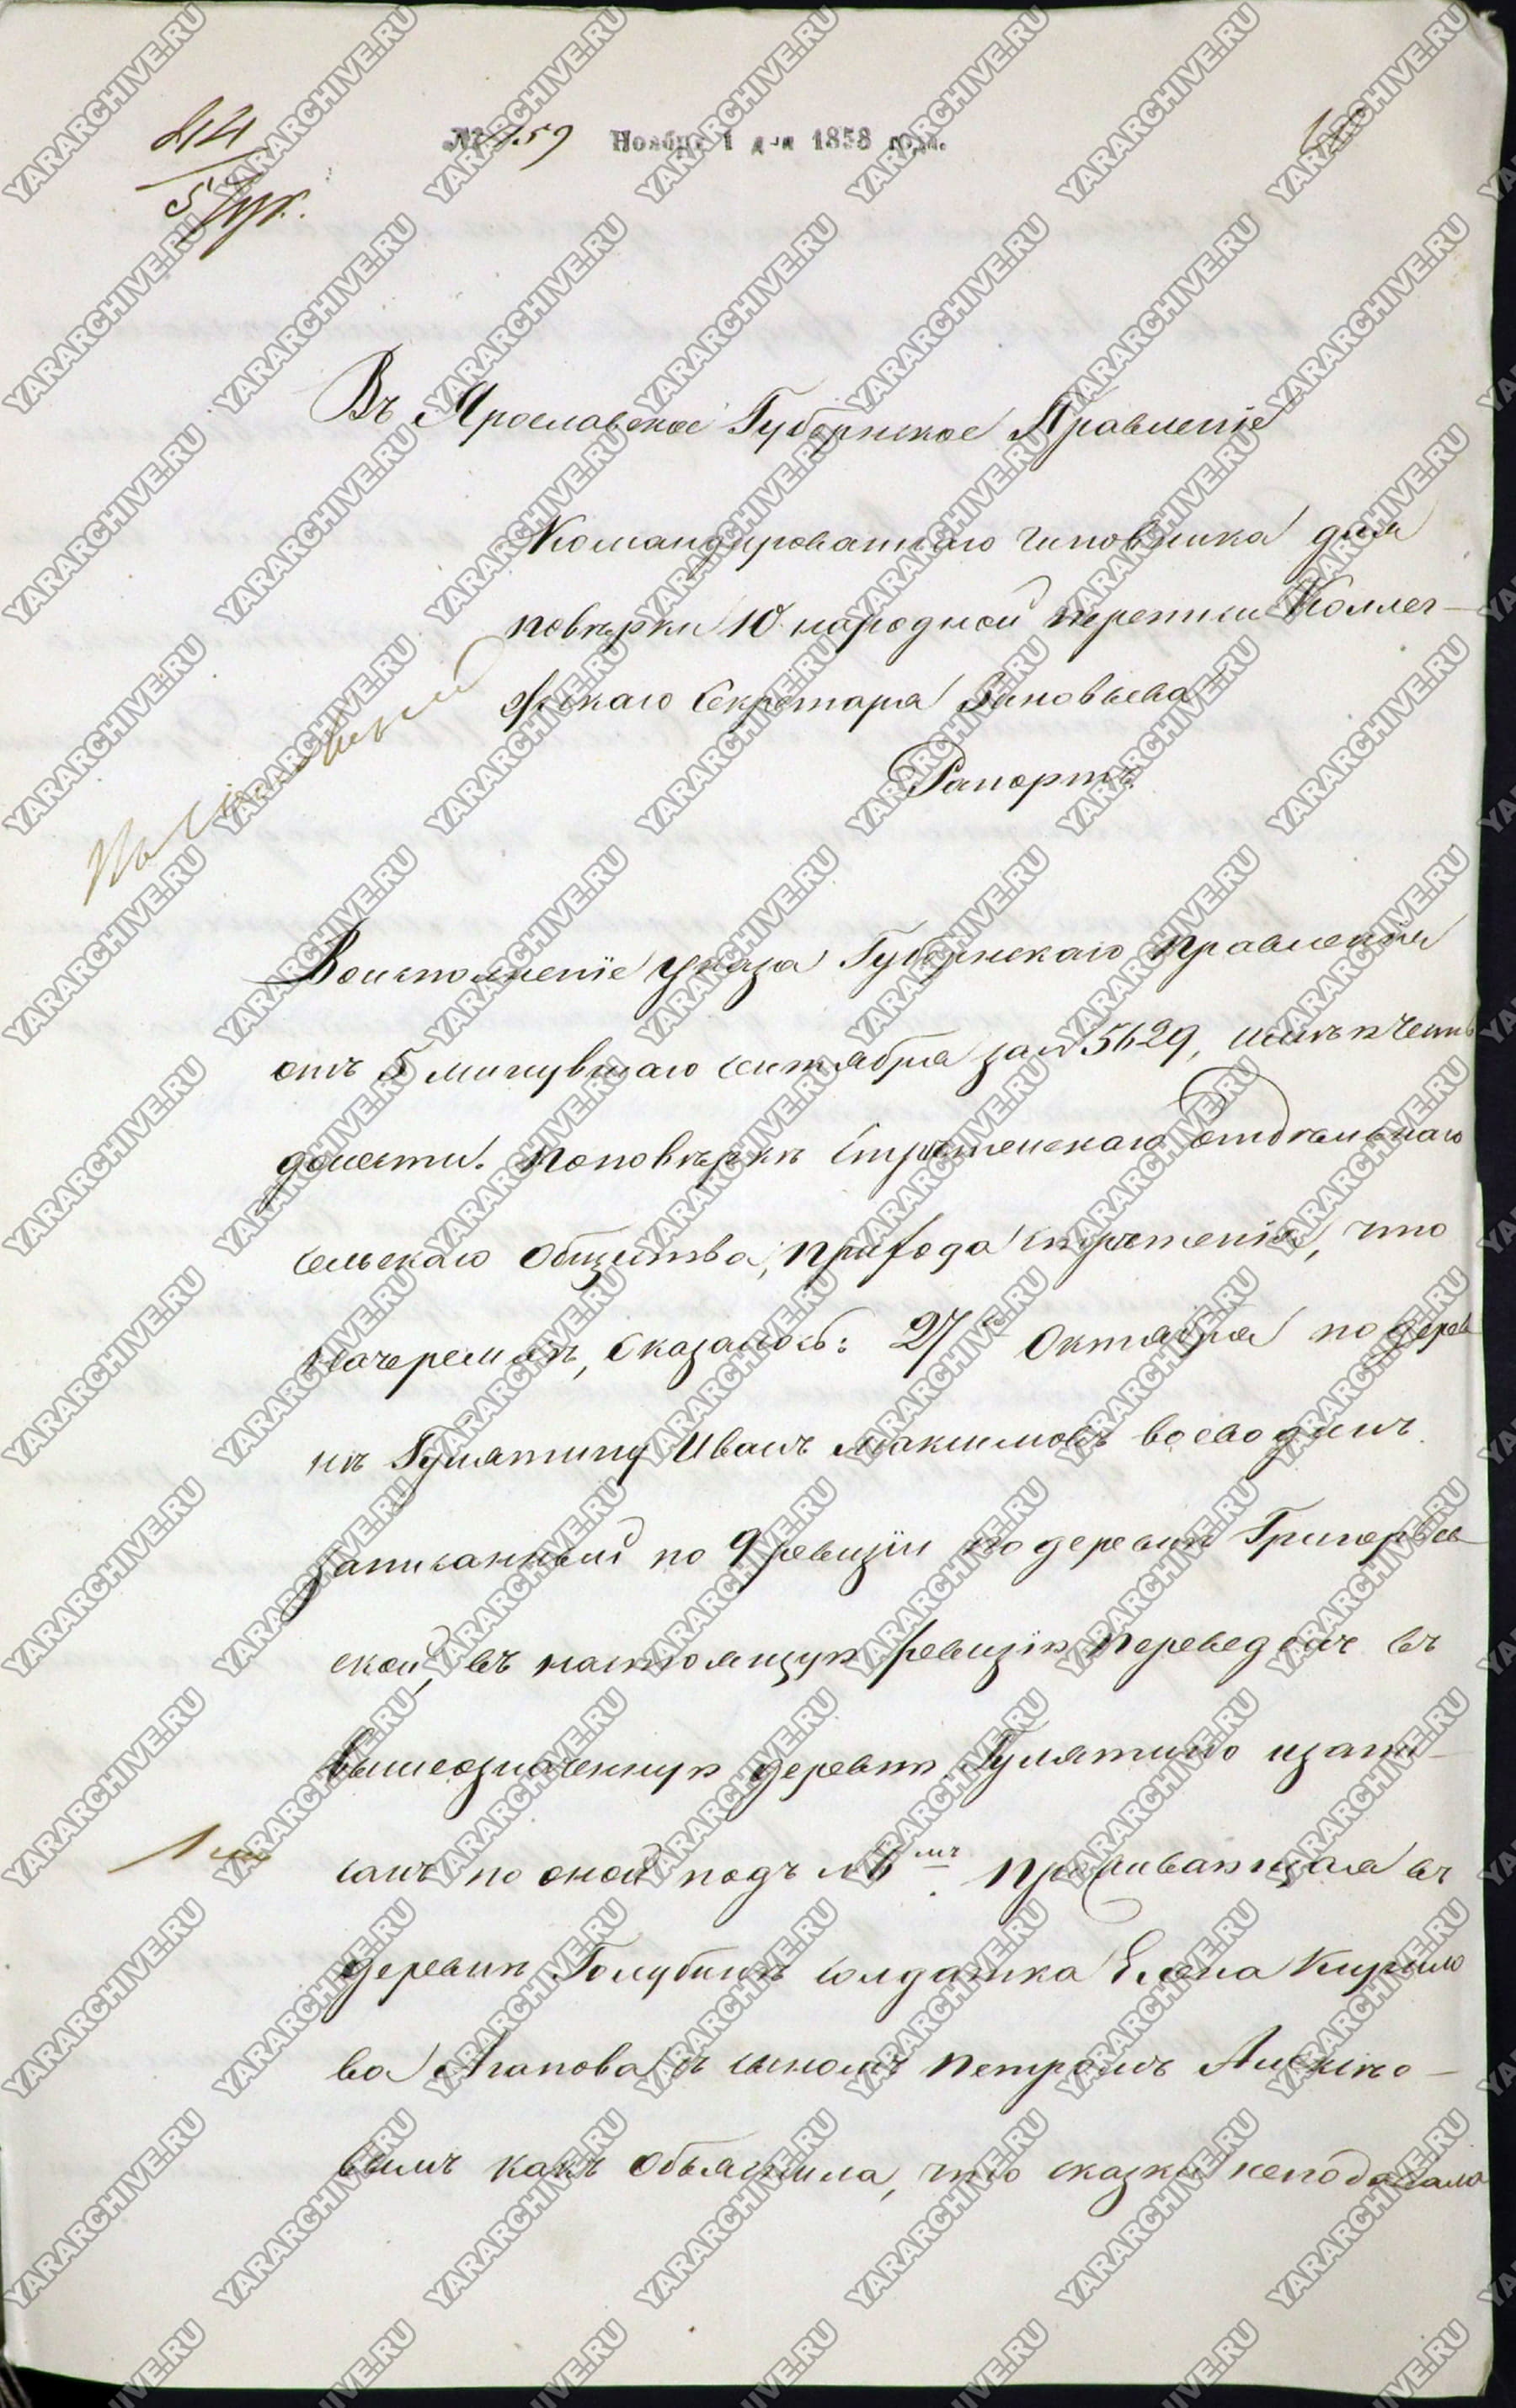 44
№ 159 Ноября 1 дня 1858 года.
Въ Ярославское Губернское Правленіе
Командированнаго чиновника для
повѣрки 10 народной переписи Коллеж-
скаго Секретаря Зиновьева
Рапортъ.
Воисполненіе указа Губернскаго правленія
отъ 5 минувшаго сентября за № 5629, имѣю честь
донести. поповѣркѣ Срѣтенскаго отдѣльнаго
сельскаго общества, прихода срѣтенія, что
начеремхѣ, оказалось: 27 Октября по дерев
нѣ Гулятину Иванъ Максимовъ воеводинъ
записанный по 9 ревизіи по деревнѣ Григорьев
ской, въ настоящую ревизію переведенъ въ
вышеозначенную деревню Гулятино изапи-
санъ по оной подъ № проживающая въ
деревнѣ Голубинѣ солдатка Елена Кирило
ва Агапова съ сыномъ петромъ Алексѣе-
вымъ какъ объяснила, что сказки неподавала
YARARCHIVE.RU